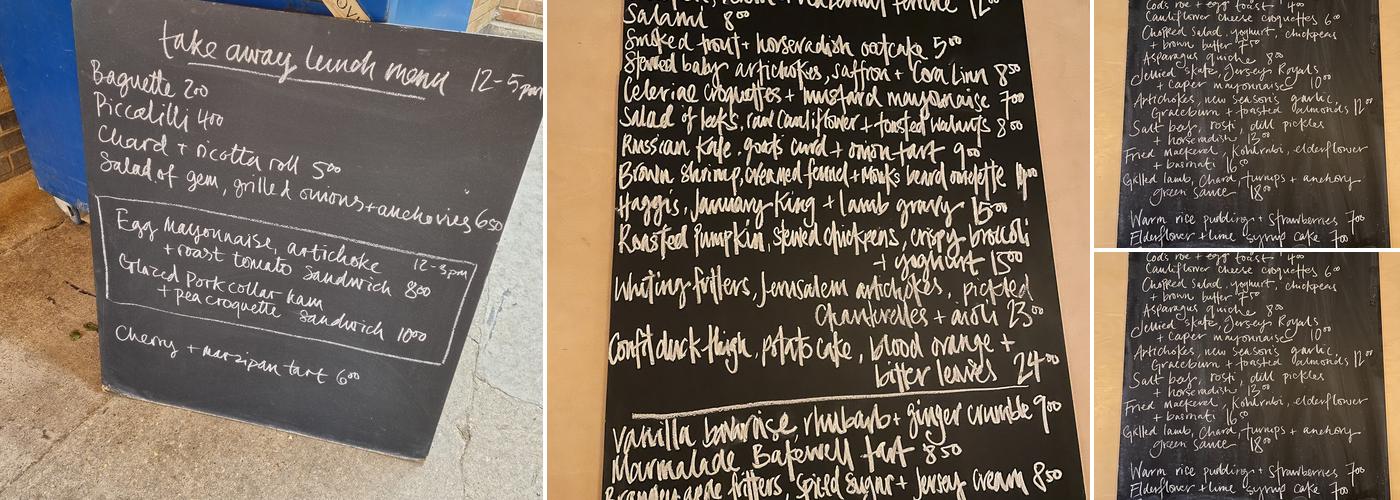 take away lunch menu 12-5pm
Baguette 200
Piccalilli 400
Chard + ricotta roll 500
Salad of gem, grilled onions + anchovies 650
Egg mayonnaise, artichoke
+ roast tomato sandwich 800
12-3pm
Glazed Pork collar ham
+ pea croquette sandwich 1000
Cherry + marzipan tart 600
1200
Salami 800
Smoked trout + horseradish oatcake 500
Stewed baby artichokes, saffron + Coolinn 850
Celeriac croquettes + mustard mayonnaise 700
Salad of leeks, raw cauliflower + toasted walnuts 800
Russian Kale, goats curd + onion tart 900
Brown shrimp, creamed fennel + Monks beard omelette
Haggis, January King + lamb gravy 1500
Roasted Pumpkin, stewed chickpeas, crispy broccoli
+ yoghurt 1500
Whiting fritters, Jerusalem artichokes, pickled
Chanterelles + aioli 2300
Confit duck thigh, potato cake, blood orange +
bitter leaves 2400
Vanilla bavaroise rhubarb + ginger crumble 900
Marmalade Bakewell tart 850
fritters, spiced sugar + Jersey cream 850
Cods roe + egg toast 400
Cauliflower cheese croquettes 600
Chopped salad, yoghurt, chickpeas
+ brown butter 750
Asparagus quiche 800
Jellied skate, Jersey Royals
+ caper mayonnaise 1000
Artichokes, new season's garlic,
Graceburn + toasted almonds 1200
Salt beef, rosti, dill pickles
+ horseradish 1300
Fried mackerel, Kohlrabi, elderflower
+ basmati 1600
Grilled lamb, Chard, turnips + anchovy
green sauce 1800
Warm rice pudding + strawberries 700
Elderflower + lime syrup cake 700
Cods roe + egg toast 400
Cauliflower cheese croquettes 600
Chopped salad, yoghurt, chickpeas
+ brown butter 750
Asparagus quiche 800
Jellied skate, Jersey Royals
+ caper mayonnaise 1000
Artichokes, new season's garlic,
Graceburn + toasted almonds 1200
Salt beef, rosti, dill pickles
+ horseradish 1300
Fried mackerel, Kohlrabi, elderflower
+ basmati 1600
Grilled lamb, Chard, turnips + anchovy
green sauce 1800
Warm rice pudding + strawberries 700
Elderflower + lime syrup cake 700